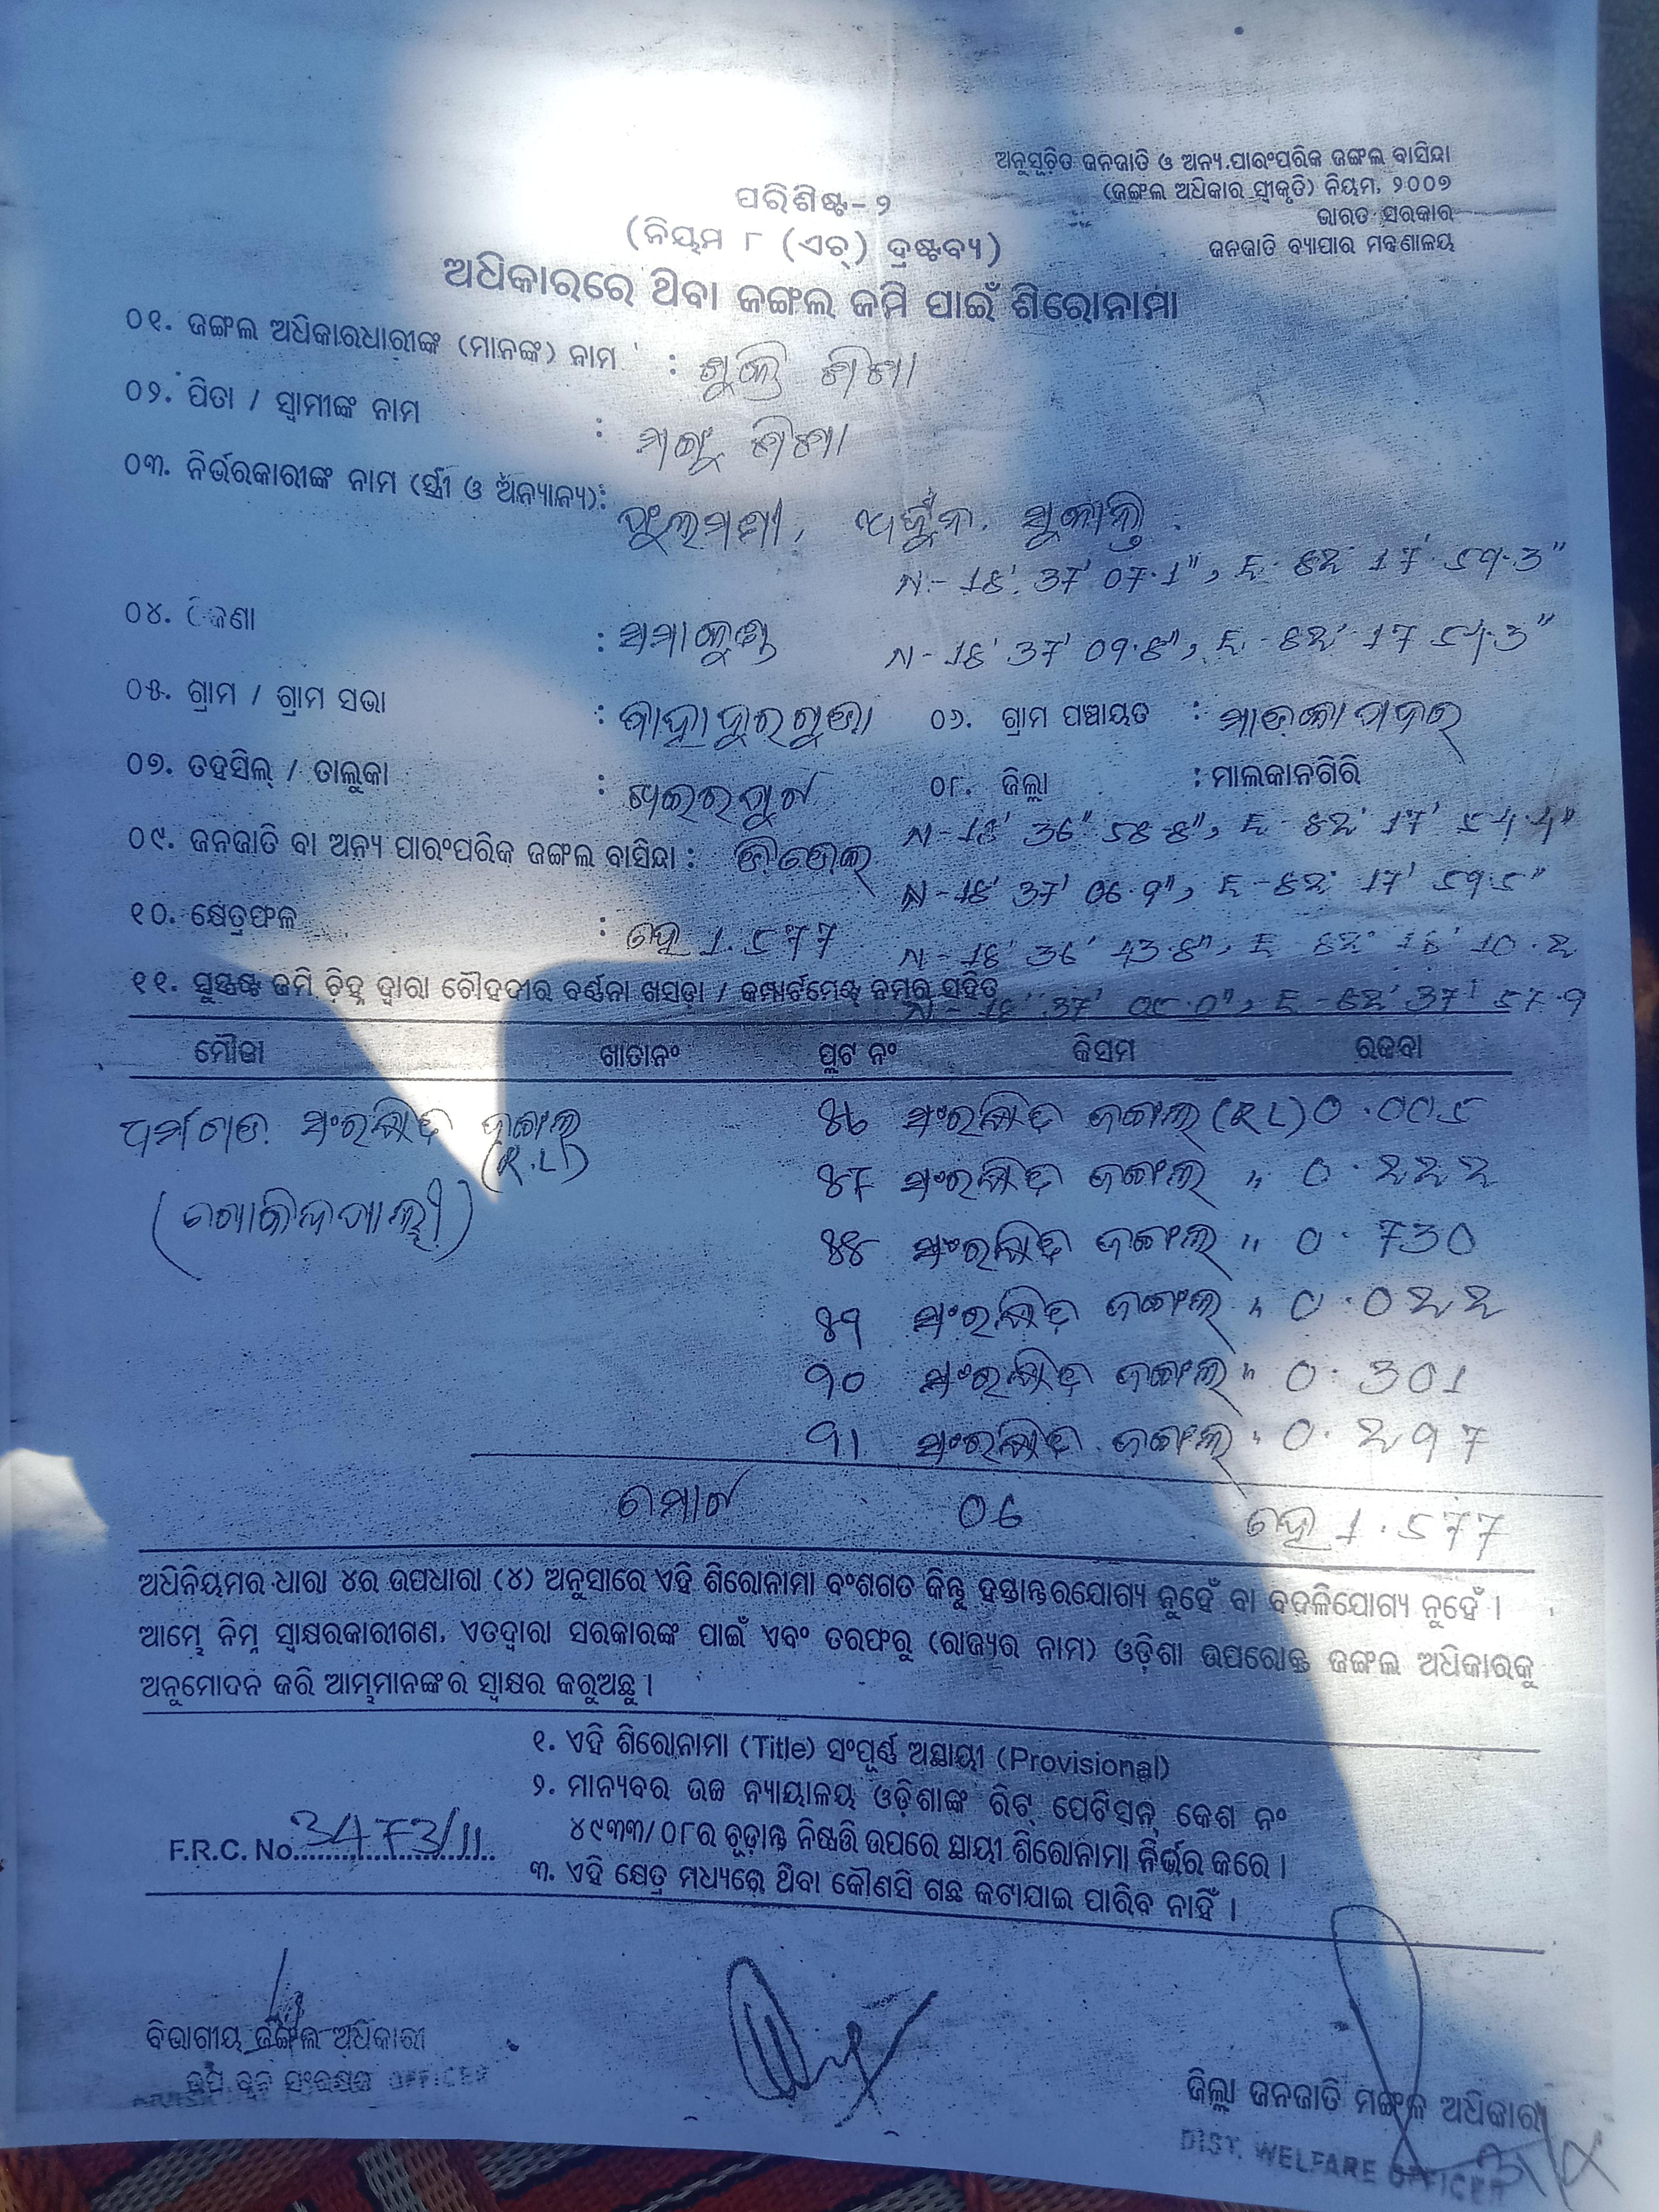 ଅନୁସୂଚିତ ଜନଜାତି ଓ ଅନ୍ୟ ପାରଂପରିକ ଜଙ୍ଗଲ ବାସିନ୍ଦା
(ଜଙ୍ଗଲ ଅଧିକାର ସ୍ୱୀକୃତି) ନିୟମ, ୨୦୦୭
ଭାରତ ସରକାର
ଜନଜାତି ବ୍ୟାପାର ମନ୍ତ୍ରଣାଳୟ
ପରିଶିଷ୍ଟ-୨
(ନିୟମ ୮ (ଏଚ୍) ଦ୍ରଷ୍ଟବ୍ୟ)
ଅଧିକାରରେ ଥିବା ଜଙ୍ଗଲ ଜମି ପାଇଁ ଶିରୋନାମା
୦୧. ଜଙ୍ଗଲ ଅଧିକାରଧାରୀଙ୍କ (ମାନଙ୍କ) ନାମ :
୦୨. ପିତା / ସ୍ୱାମୀଙ୍କ ନାମ :
୦୩. ନିର୍ଭରକାରୀଙ୍କ ନାମ (ସ୍ତ୍ରୀ ଓ ଅନ୍ୟାନ୍ୟ): ଫୁଲମଣୀ, ଅର୍ଜୁନ,
N-18' 37' 07.1", E-82' 17' 59.3"
୦୪. ଠିକଣା :
N-18' 37' 09.8", E-82' 17 54.3"
୦୫. ଗ୍ରାମ / ଗ୍ରାମ ସଭା : ବାହାଦୁରଗୁଡା ୦୬. ଗ୍ରାମ ପଞ୍ଚାୟତ :
୦୭. ତହସିଲ୍ / ତାଲୁକା : ଖଇରପୁଟ ୦୮. ଜିଲ୍ଲା : ମାଲକାନଗିରି
N-18' 36" 58.8", E-82' 17' 54.4"
୦୯. ଜନଜାତି ବା ଅନ୍ୟ ପାରଂପରିକ ଜଙ୍ଗଲ ବାସିନ୍ଦା :
N-18' 37' 06.9", E-82' 17' 59.5"
୧୦. କ୍ଷେତ୍ରଫଳ : ହେ 1.577
N-18' 36' 43.8", E-82' 18' 10.2
୧୧. ସୁସ୍ପଷ୍ଟ ଜମି ଚିହ୍ନ ଦ୍ୱାରା ଚୌହଦୀର ବର୍ଣ୍ଣନା ଖସଡ଼ା / କମ୍ପାର୍ଟମେଣ୍ଟ ନମ୍ବର ସହିତ
N-18' 37' 05.0", E-82' 37' 57.9
ମୌଜା ଖାତାନଂ ପ୍ଲଟ ନଂ କିସମ ରକବା
ସଂରକ୍ଷିତ ଜଙ୍ଗଲ 86 ସଂରକ୍ଷିତ ଜଙ୍ଗଲ (RL) 0.005
(R.L)
87 ସଂରକ୍ଷିତ ଜଙ୍ଗଲ " 0.222
(ଗୋବିନ୍ଦପାଲ୍ଲୀ)
88 ସଂରକ୍ଷିତ ଜଙ୍ଗଲ " 0.730
89 ସଂରକ୍ଷିତ ଜଙ୍ଗଲ " 0.022
90 ସଂରକ୍ଷିତ ଜଙ୍ଗଲ " 0.301
91 ସଂରକ୍ଷିତ ଜଙ୍ଗଲ " 0.297
ମୋଟ 06 ହେ 1.577
ଅଧିନିୟମର ଧାରା ୪ର ଉପଧାରା (୪) ଅନୁସାରେ ଏହି ଶିରୋନାମା ବଂଶଗତ କିନ୍ତୁ ହସ୍ତାନ୍ତରଯୋଗ୍ୟ ନୁହେଁ ବା ବଦଳିଯୋଗ୍ୟ ନୁହେଁ ।
ଆମ୍ଭେ ନିମ୍ନ ସ୍ୱାକ୍ଷରକାରୀଗଣ, ଏତଦ୍ୱାରା ସରକାରଙ୍କ ପାଇଁ ଏବଂ ତରଫରୁ (ରାଜ୍ୟର ନାମ) ଓଡ଼ିଶା ଉପରୋକ୍ତ ଜଙ୍ଗଲ ଅଧିକାରକୁ
ଅନୁମୋଦନ କରି ଆମ୍ଭମାନଙ୍କର ସ୍ୱାକ୍ଷର କରୁଅଛୁ ।
୧. ଏହି ଶିରୋନାମା (Title) ସଂପୂର୍ଣ୍ଣ ଅସ୍ଥାୟୀ (Provisional)
୨. ମାନ୍ୟବର ଉଚ୍ଚ ନ୍ୟାୟାଳୟ ଓଡ଼ିଶାଙ୍କ ରିଟ୍ ପେଟିସନ୍ କେଶ ନଂ
୪୯୩୩/୦୮ର ଚୂଡ଼ାନ୍ତ ନିଷ୍ପତ୍ତି ଉପରେ ସ୍ଥାୟୀ ଶିରୋନାମା ନିର୍ଭର କରେ ।
F.R.C. No. 3473/11
୩. ଏହି କ୍ଷେତ୍ର ମଧ୍ୟରେ ଥିବା କୌଣସି ଗଛ କଟାଯାଇ ପାରିବ ନାହିଁ ।
ବିଭାଗୀୟ ଜଙ୍ଗଲ ଅଧିକାରୀ
ଉପ ବନ ସଂରକ୍ଷକ OFFICER
ଜିଲ୍ଲା ଜନଜାତି ମଙ୍ଗଳ ଅଧିକାରୀ
DIST. WELFARE OFFICER